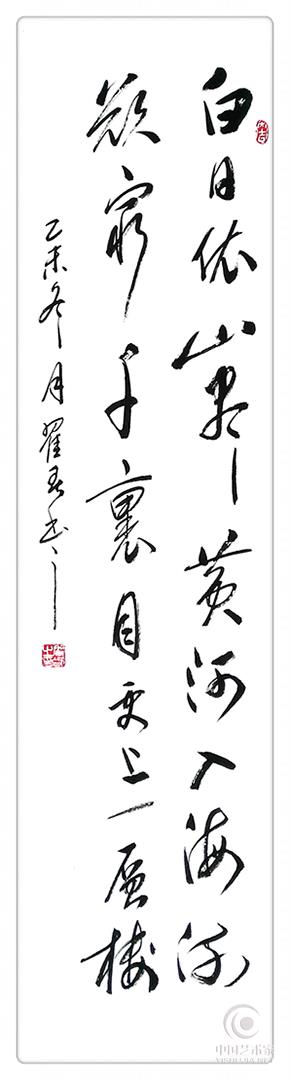 白日依山尽黄河入海流
欲穷千裏目更上一层楼
乙未冬月翟春书
中国艺术家
YISHUJIA.NET